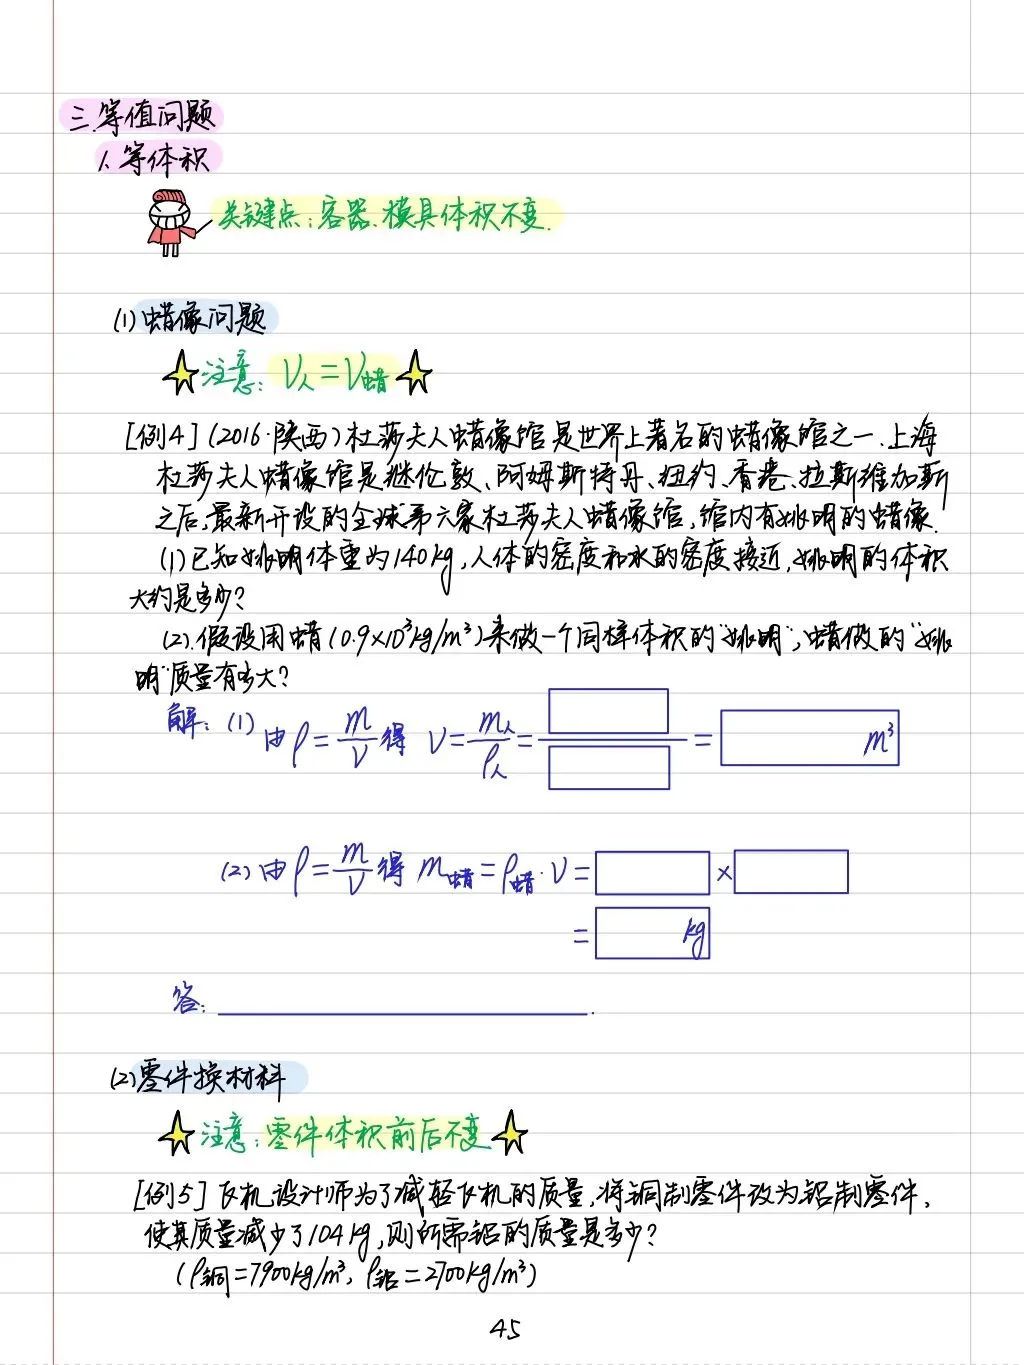 三.等值问题
1.等体积
关键点:容器、模具体积不变.
(1)蜡像问题
注意: V人=V蜡
[例4](2016·陕西)杜莎夫人蜡像馆是世界上著名的蜡像馆之一.上海
杜莎夫人蜡像馆是继伦敦、阿姆斯特丹、纽约、香港、拉斯维加斯
之后,最新开设的全球第六家杜莎夫人蜡像馆,馆内有姚明的蜡像.
(1)已知姚明体重为140kg,人体的密度和水的密度接近,姚明的体积
大约是多少?
(2).假设用蜡(0.9×10³kg/m³)来做一个同样体积的“姚明”,蜡做的“姚
明”质量有多大?
解:(1)由ρ=m/V得 V=m人/ρ人= = m³
(2)由ρ=m/V得 m蜡=ρ蜡·V= ×
= kg
答: .
(2)零件换材料
注意:零件体积前后不变
[例5]飞机设计师为了减轻飞机的质量,将铜制零件改为铝制零件,
使其质量减少了104kg,则所需铝的质量是多少?
(ρ铜=7900kg/m³, ρ铝=2700kg/m³)
45